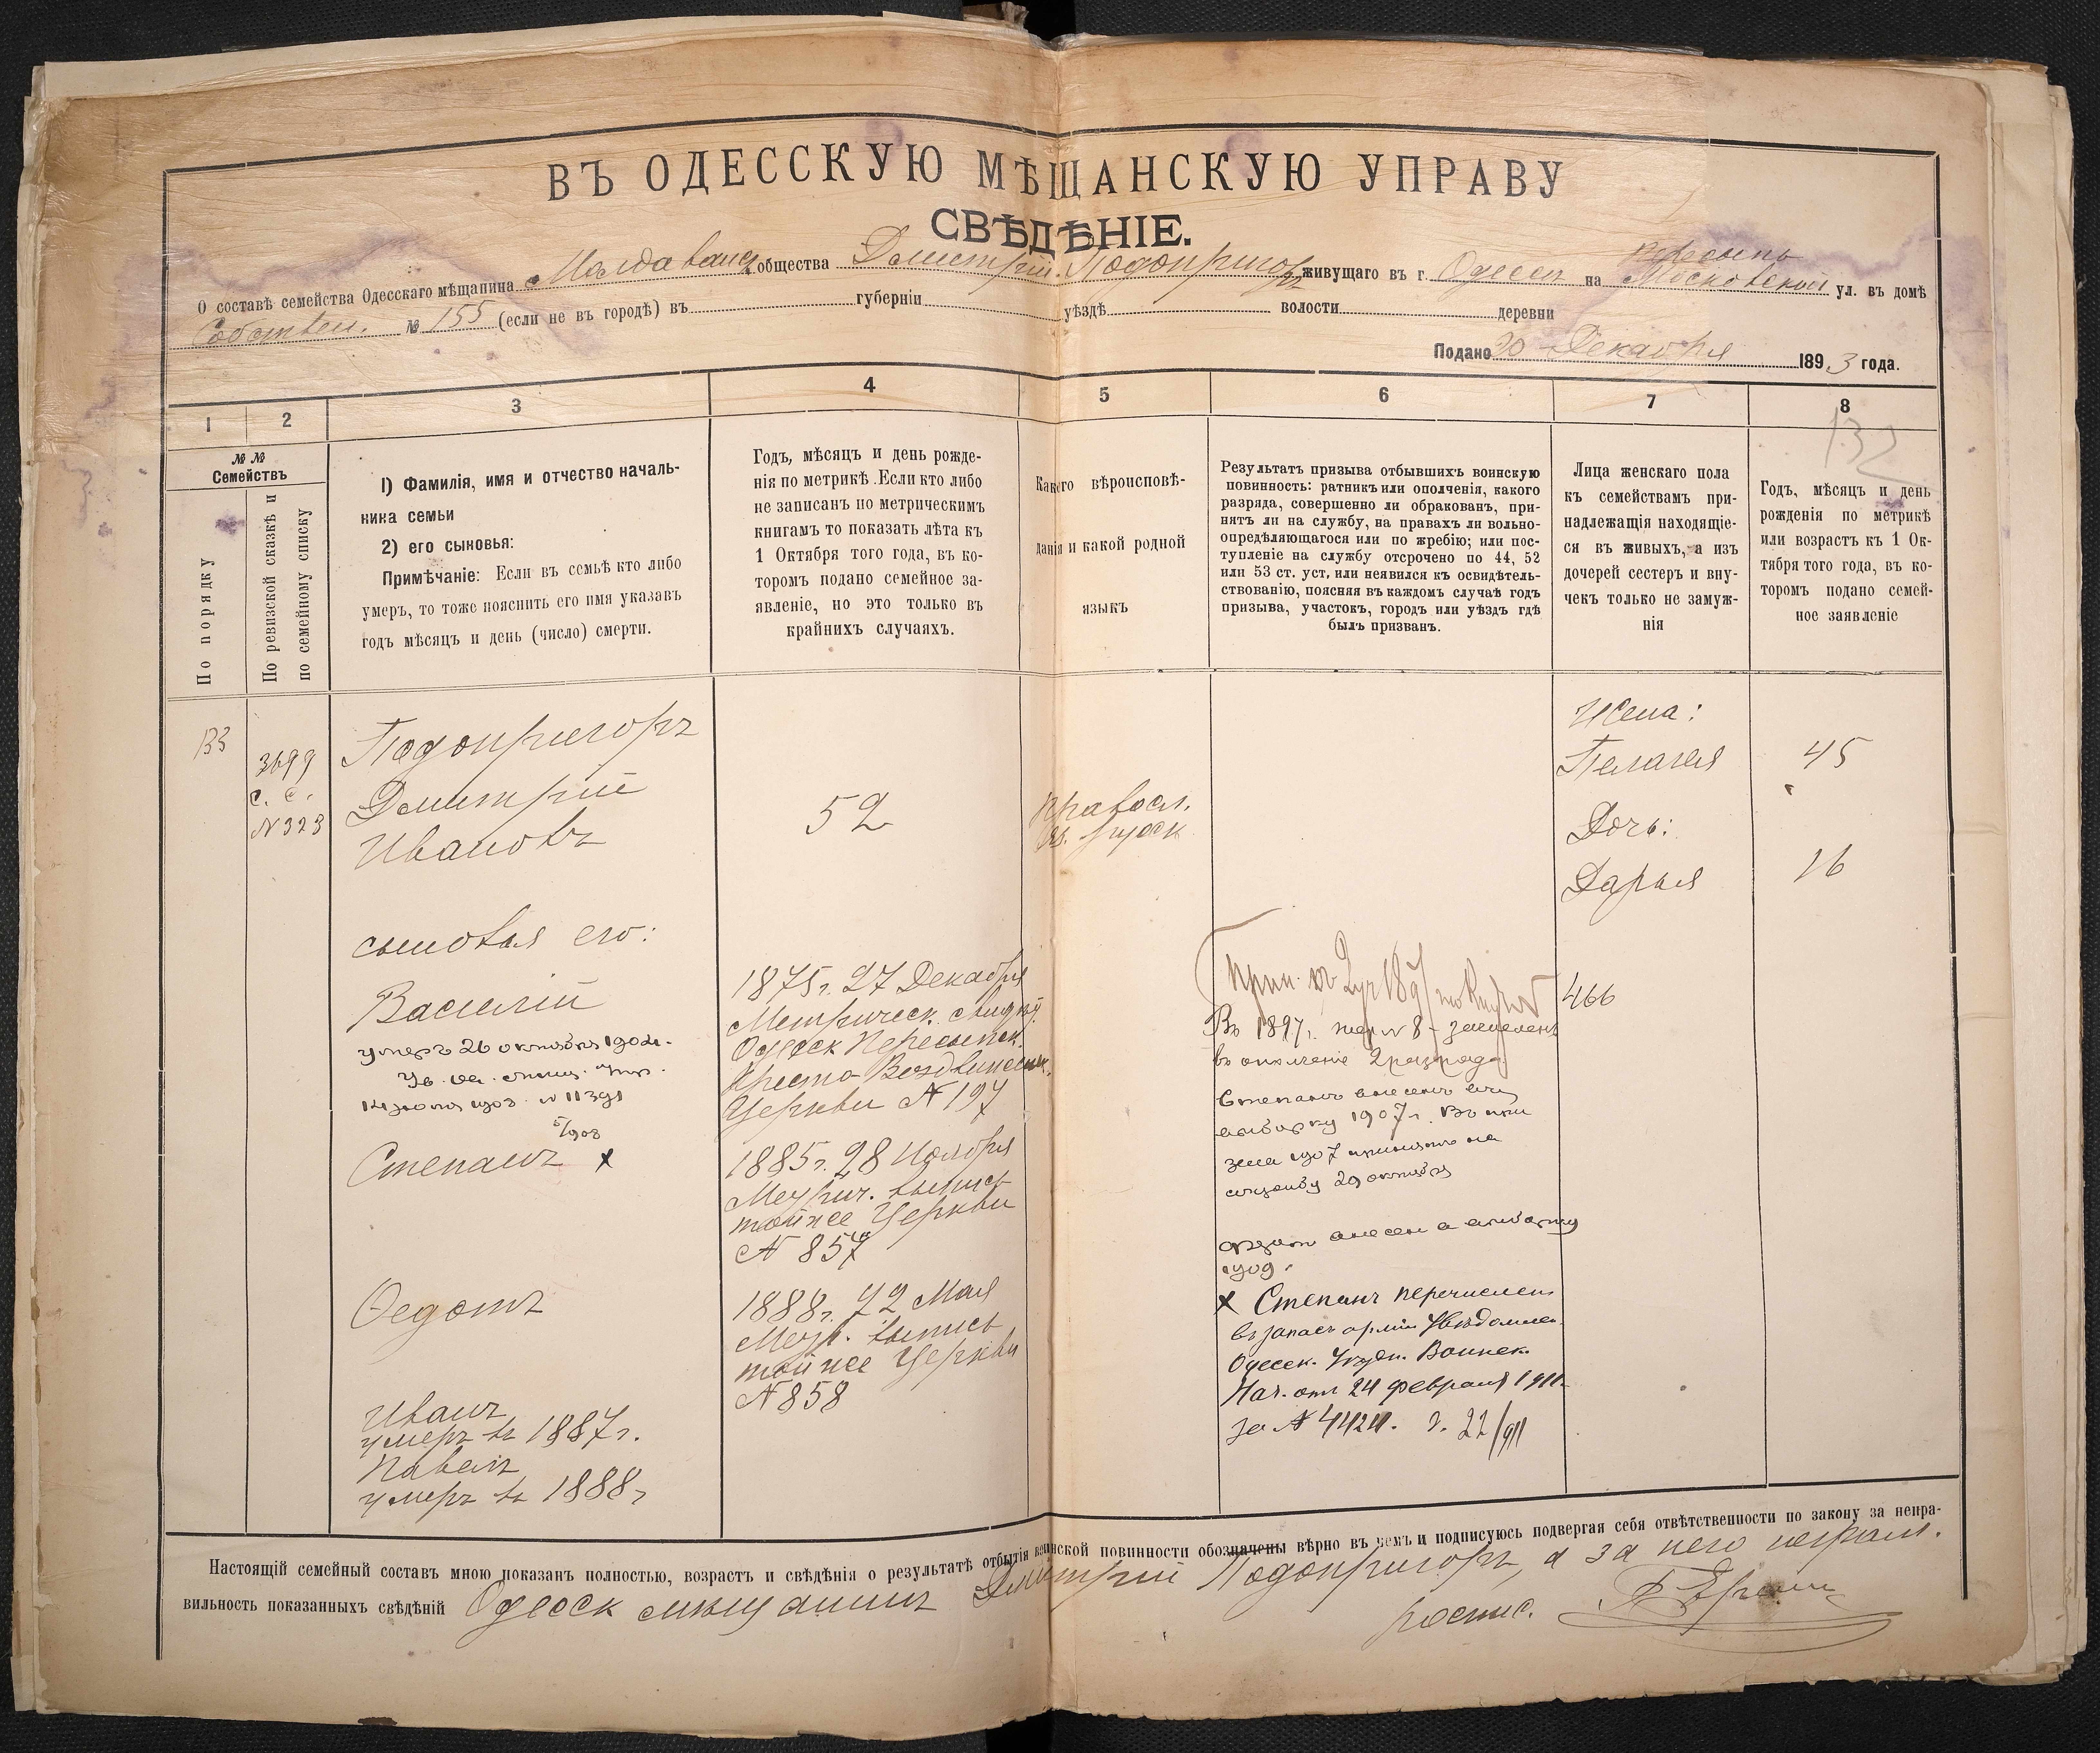 ВЪ ОДЕССКУЮ МѢЩАНСКУЮ УПРАВУ
СВѢДѢНІЕ.
О составѣ семейства Одесскаго мѣщанина Молдаванск. общества Дмитрій Подопригоръ живущаго въ г. Одессѣ на Пересыпь Московской ул. въ домѣ
Собствен. № 155 (если не въ городѣ) въ губерніи уѣздѣ волости деревни
Подано 20 Декабря 1893 года.
1 2 3 4 5 6 7 8
132
№ №
Семействъ
По порядку
По ревизской сказкѣ и
по семейному списку
1) Фамилія, имя и отчество началь-
ника семьи
2) его сыновья:
Примѣчаніе: Если въ семьѣ кто либо
умеръ, то тоже пояснить его имя указавъ
годъ мѣсяцъ и день (число) смерти.
Годъ, мѣсяцъ и день рожде-
нія по метрикѣ. Если кто либо
не записанъ по метрическимъ
книгамъ то показать лѣта къ
1 Октября того года, въ ко-
торомъ подано семейное за-
явленіе, но это только въ
крайнихъ случаяхъ.
Какого вѣроисповѣ-
данія и какой родной
языкъ
Результатъ призыва отбывшихъ воинскую
повинность: ратникъ или ополченія, какого
разряда, совершенно ли обракованъ, при-
нятъ ли на службу, на правахъ ли вольно-
опредѣляющагося или по жребію; или пос-
тупленіе на службу отсрочено по 44, 52
или 53 ст. уст. или неявился къ освидѣтель-
ствованію, поясняя въ каждомъ случаѣ годъ
призыва, участокъ, городъ или уѣздъ гдѣ
былъ призванъ.
Лица женскаго пола
къ семействамъ при-
надлежащія находящіе-
ся въ живыхъ, а изъ
дочерей сестеръ и вну-
чекъ только не замуж-
нія
Годъ, мѣсяцъ и день
рожденія по метрикѣ
или возрастъ къ 1 Ок-
тября того года, въ ко-
торомъ подано семей-
ное заявленіе
133
3699
с. с.
N 323
Подопригоръ
Дмитрій
Ивановъ
52
Правосл.
яз. русск
Жена:
Пелагея 45
Дочь:
Дарья 16
сыновья его:
Василій
умеръ 26 октября 1902 г.
14 іюля 1903 N 11391
1875 г. 27 Декабря
Метрическ. свид.
Одесск Пересыпск.
Кресто-Воздвиженск.
Церкви N 197
466
Въ 1897 г. N 8 - зачисленъ
въ ополченіе 2 разряда
Степанъ внесенъ въ
1907 г.
1907 принятъ на
службу 29 октября
5/908
Степанъ x
1885 г. 28 Ноября
Метрич. выпись
той же Церкви
N 857
Ѳедотъ внесен
1909.
Ѳедотъ
1888 г. 12 Мая
Метр. выпись
той же Церкви
N 858
x Степанъ перечислен
въ запасъ арміи Увѣдомлен.
Одесск. Уѣздн. Воинск.
Нач. отъ 24 февраля 1911
за N 4424. 22/911
Иванъ
умеръ въ 1887 г.
Павелъ
умеръ въ 1888 г
Настоящій семейный составъ мною показанъ полностью, возрастъ и свѣдѣнія о результатѣ отбытія воинской повинности обозначены вѣрно въ чемъ и подписуюсь подвергая себя отвѣтственности по закону за непра-
вильность показанныхъ свѣдѣній Одесск мѣщанинъ Дмитрій Подопригоръ, а за него неграм.
роспис.